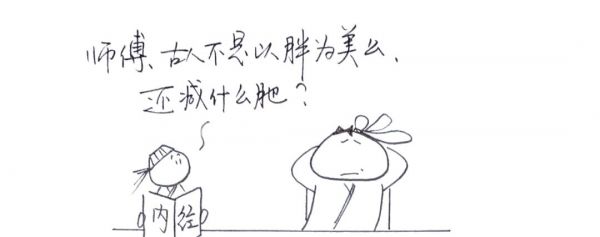 师傅、古人不是以胖为美么、
还减什么肥？
内经